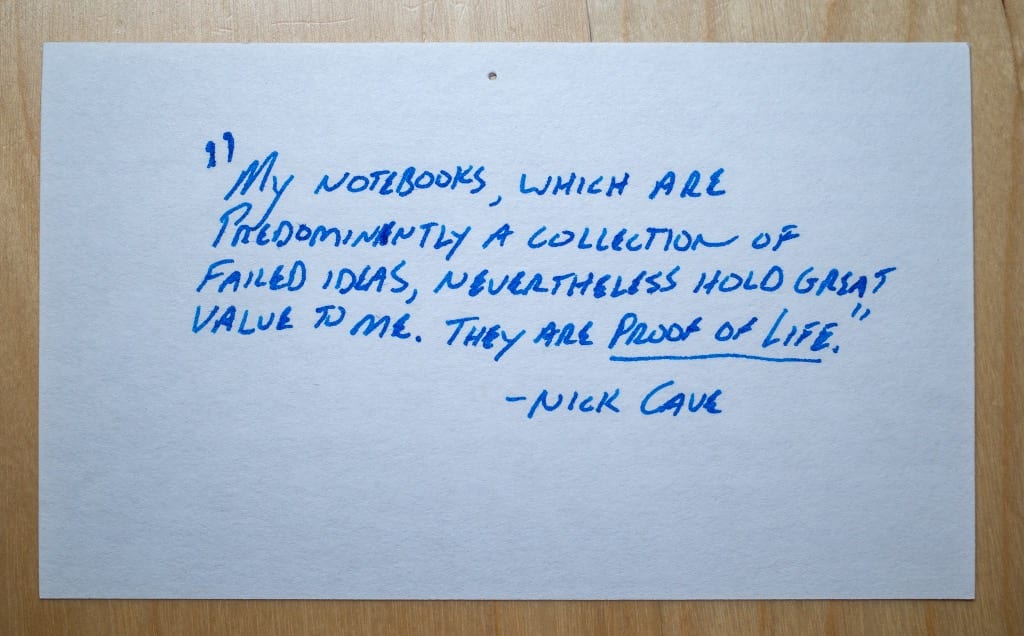 "My NOTEBOOKS, WHICH ARE
PREDOMINENTLY A COLLECTION OF
FAILED IDEAS, NEVERTHELESS HOLD GREAT
VALUE TO ME. THEY ARE PROOF OF LIFE."
-NICK CAVE